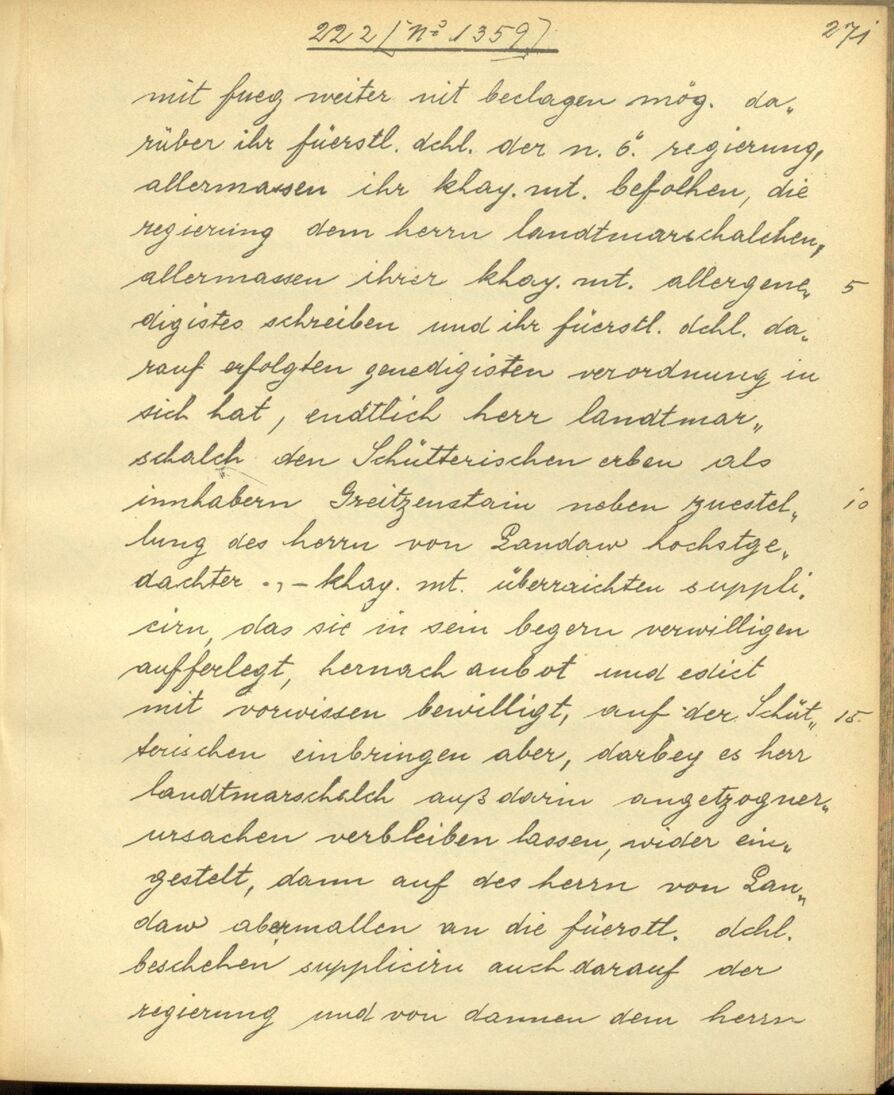 222 [No 1359]
271
mit fueg weiter nit beclagen mög. da„
rüber ihr füerstl. dchl. der n. ö. regierung,
allermassen ihr khay. mt. befolhen, die
regierung dem herrn landtmarschalchen,
allermassen ihrer khay. mt. allergene„ 5
digistes schreiben und ihr füerstl. dchl. da„
rauf erfolgten genedigisten verordnung in
sich hat, endtlich herr landtmar„
schalch den Schütterischen erben als
innhabern Greitzenstain neben zuestel„ 10
lung des herrn von Landaw höchstge„
dachter khay. mt. überraichten suppli„
cirn, das sie in sein begern verwilligen
aufferlegt, hernach anbot und edict
mit vorwissen bewilligt, auf der Schüt„ 15
terischen einbringen aber, darbey es herr
landtmarschalch auß darin angetzogner„
ursachen verbleiben lassen, wider ein„
gestelt, dann auf des herrn von Lan„
daw abermallen an die füerstl. dchl.
beschehen supplicirn auch darauf der
regierung und von dannen dem herrn